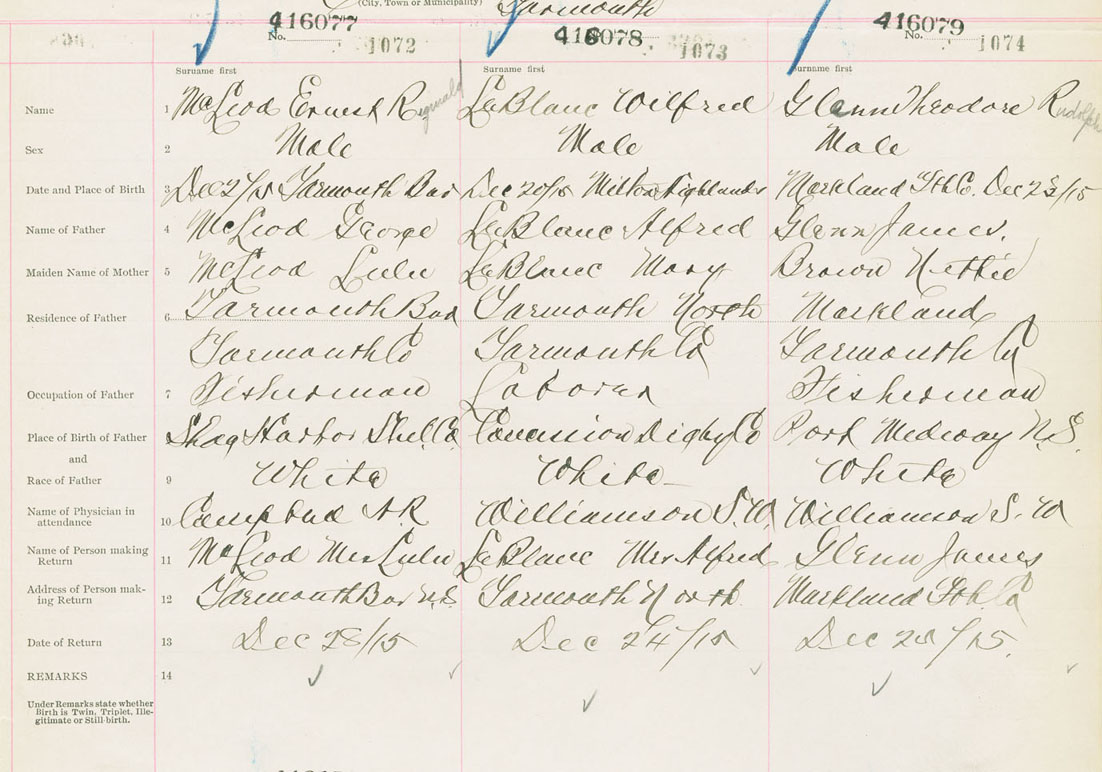 (City, Town or Municipality) Yarmouth
416077 416078 416079
No. 1072 1073 No. 1074
Surname first Surname first Surname first
Name 1 McLeod Ernest Reginald LeBlanc Wilfred Glenn Theodore Rudolph
Sex 2 Male Male Male
Date and Place of Birth 3 Dec 2/15 Yarmouth Bar Dec 20/15 Milton Highlands Markland Yth Co. Dec 23/15
Name of Father 4 McLeod George LeBlanc Alfred Glenn James.
Maiden Name of Mother 5 McLeod Lulu LeBlanc Mary Brown Nettie
Residence of Father 6 Yarmouth Bar Yarmouth North Markland
Yarmouth Co Yarmouth Co Yarmouth Co
Occupation of Father 7 Fisherman Laborer Fisherman
Place of Birth of Father Shag Harbor Shel. Co. Concession Digby Co Port Medway N.S.
and
Race of Father 9 White White White
Name of Physician in attendance 10 Campbell A.R. Williamson S.W. Williamson S. W
Name of Person making Return 11 McLeod Mrs Lulu LeBlanc Mrs Alfred Glenn James
Address of Person making Return 12 Yarmouth Bar N.S. Yarmouth North Markland Yth. Co
Date of Return 13 Dec 28/15 Dec 24/15 Dec 28/15.
REMARKS 14
Under Remarks state whether
Birth is Twin, Triplet, Ille-
gitimate or Still-birth.